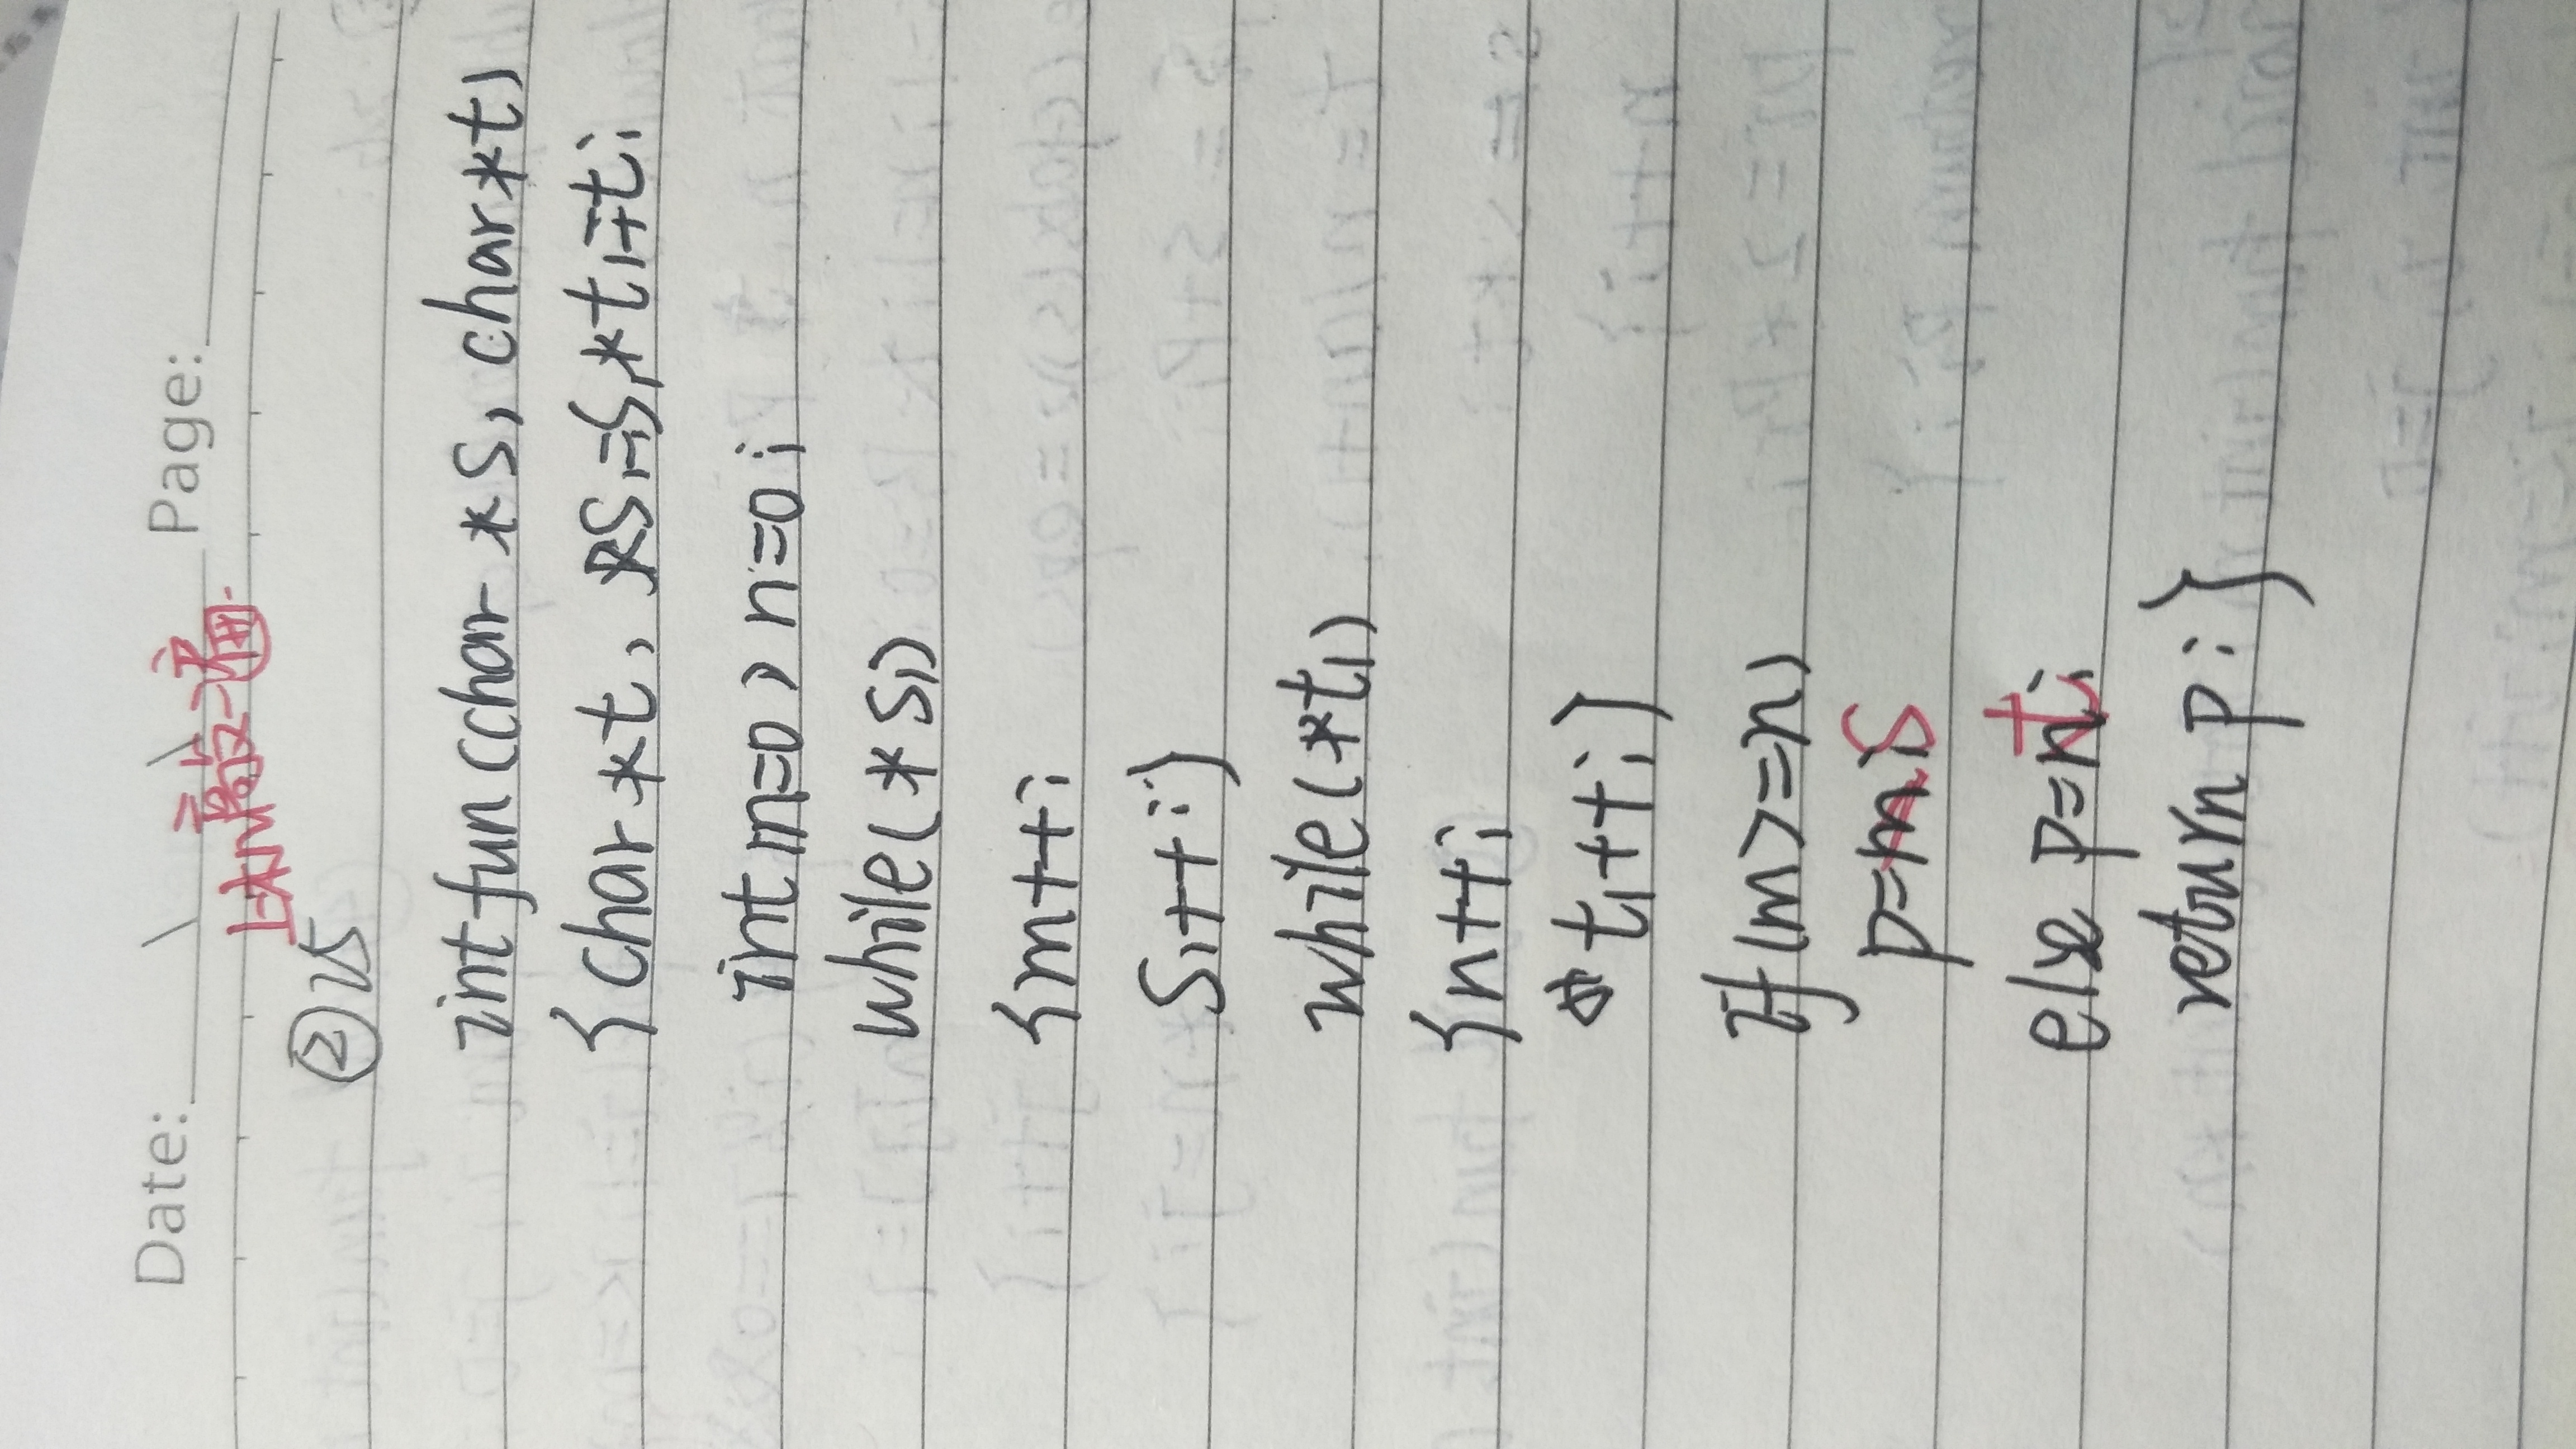 Date: \ \ Page:
上机敲一遍.
②25
int fun (char *s, char *t)
{ char *t, *s1=s, *t1=t;
int m=0, n=0;
while(*s1)
{m++;
s1++;}
while(*t1)
{n++;
t1++;}
if(m>=n)
p=m;s
else p=nt;
return p;}